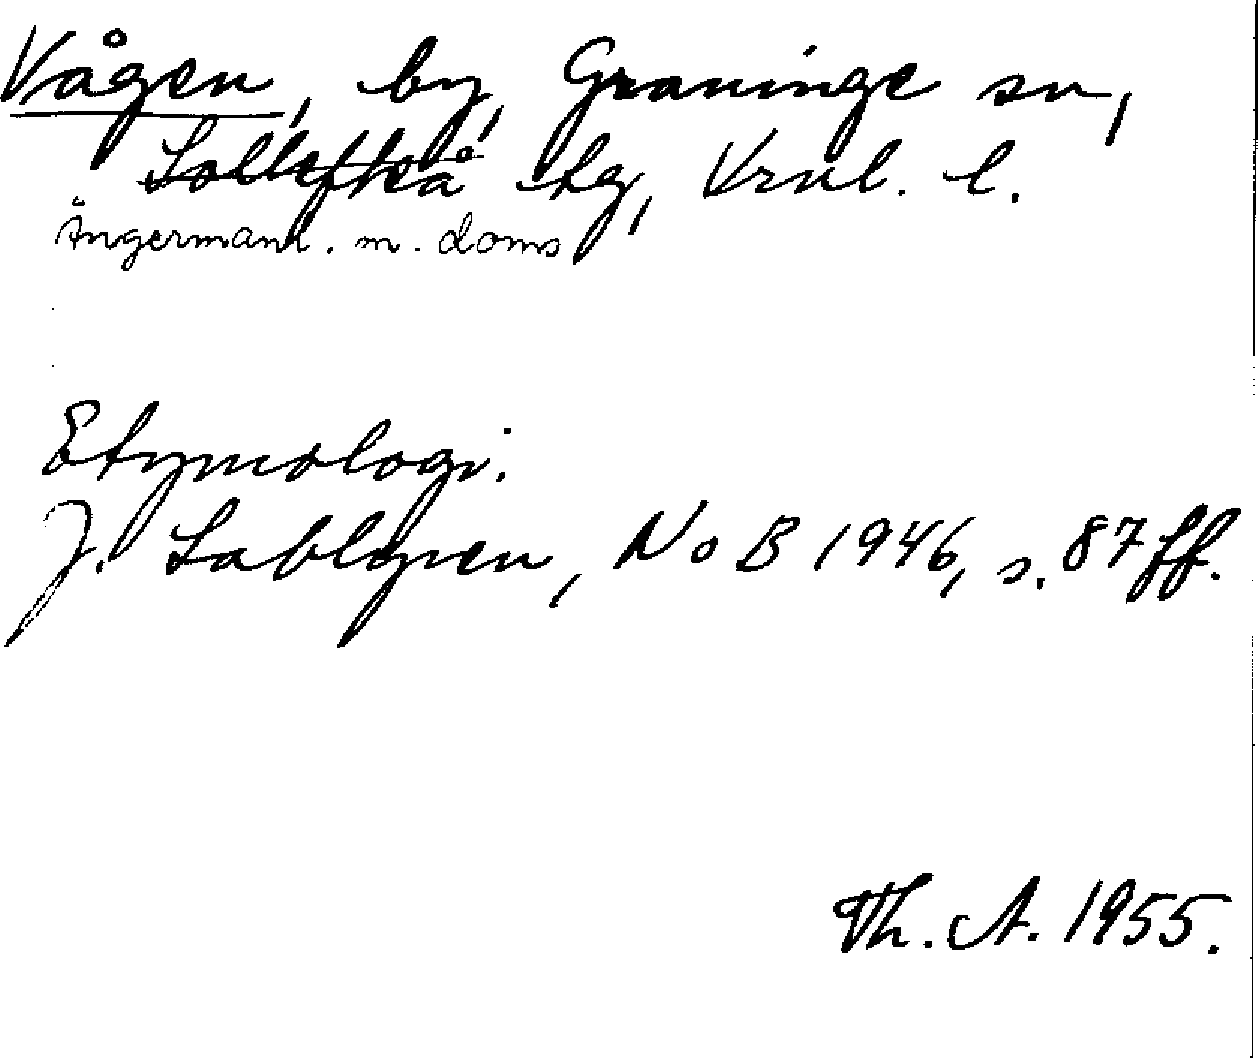 Vågen, by, Graninge sn,
Sollefteå tg, Vrnl. l.
Ångermanl. m. doms
Etymologi.
J. Sahlgren, NoB 1946, s. 87 ff.
Th. A. 1955.